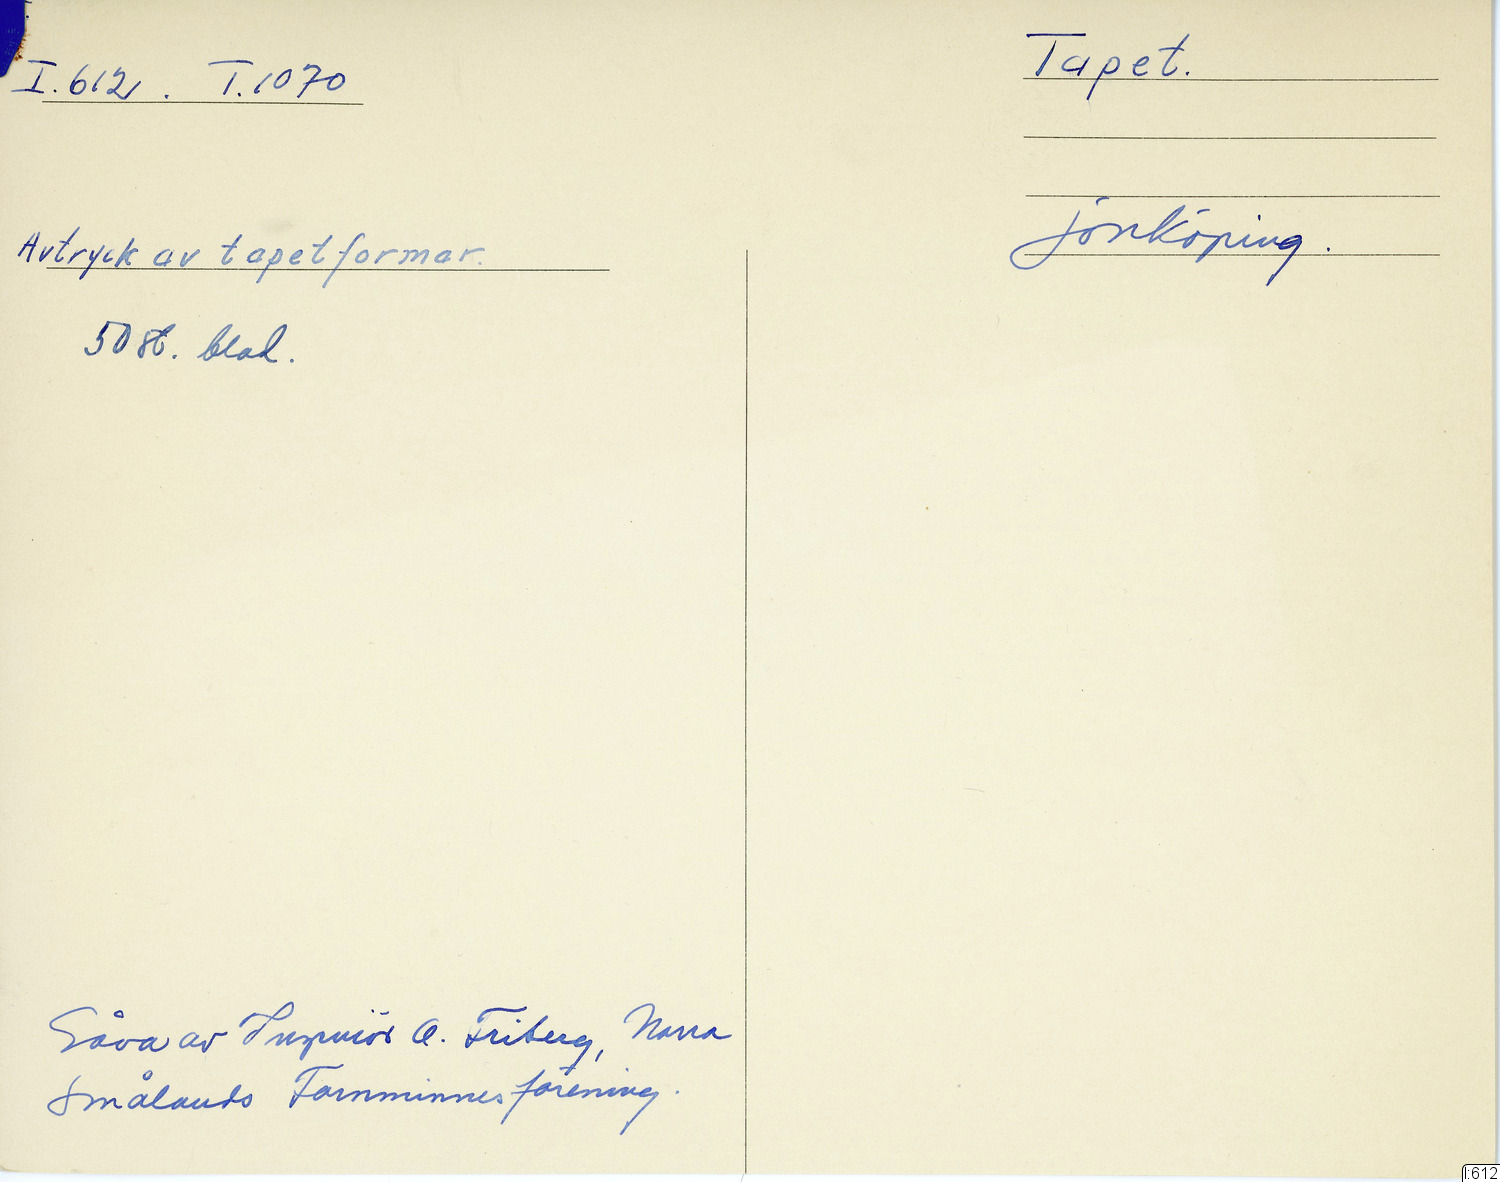 I.612. T.1070
Tapet.
Jönköping.
Avtryck av tapetformar.
50 st. blad.
Gåva av Ingeniör O. Friberg, Norra
Smålands Fornminnesförening.
I:612